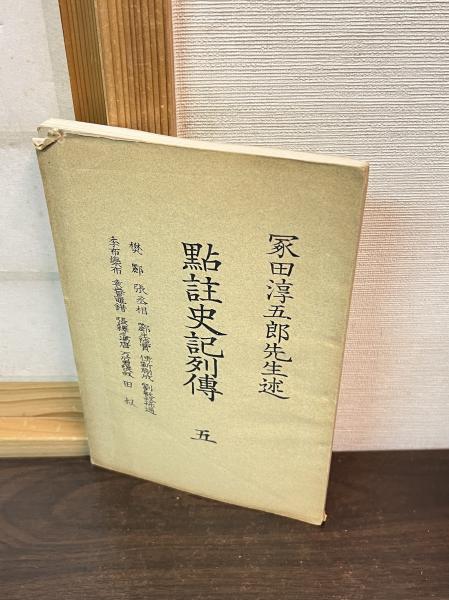 冢田淳五郎先生述
點註史記列傳　五
樊酈　張丞相　酈生陸賈　傅靳蒯成　劉敬叔孫通
季布欒布　袁盎鼂錯　張釋之馮唐　萬石張叔　田叔